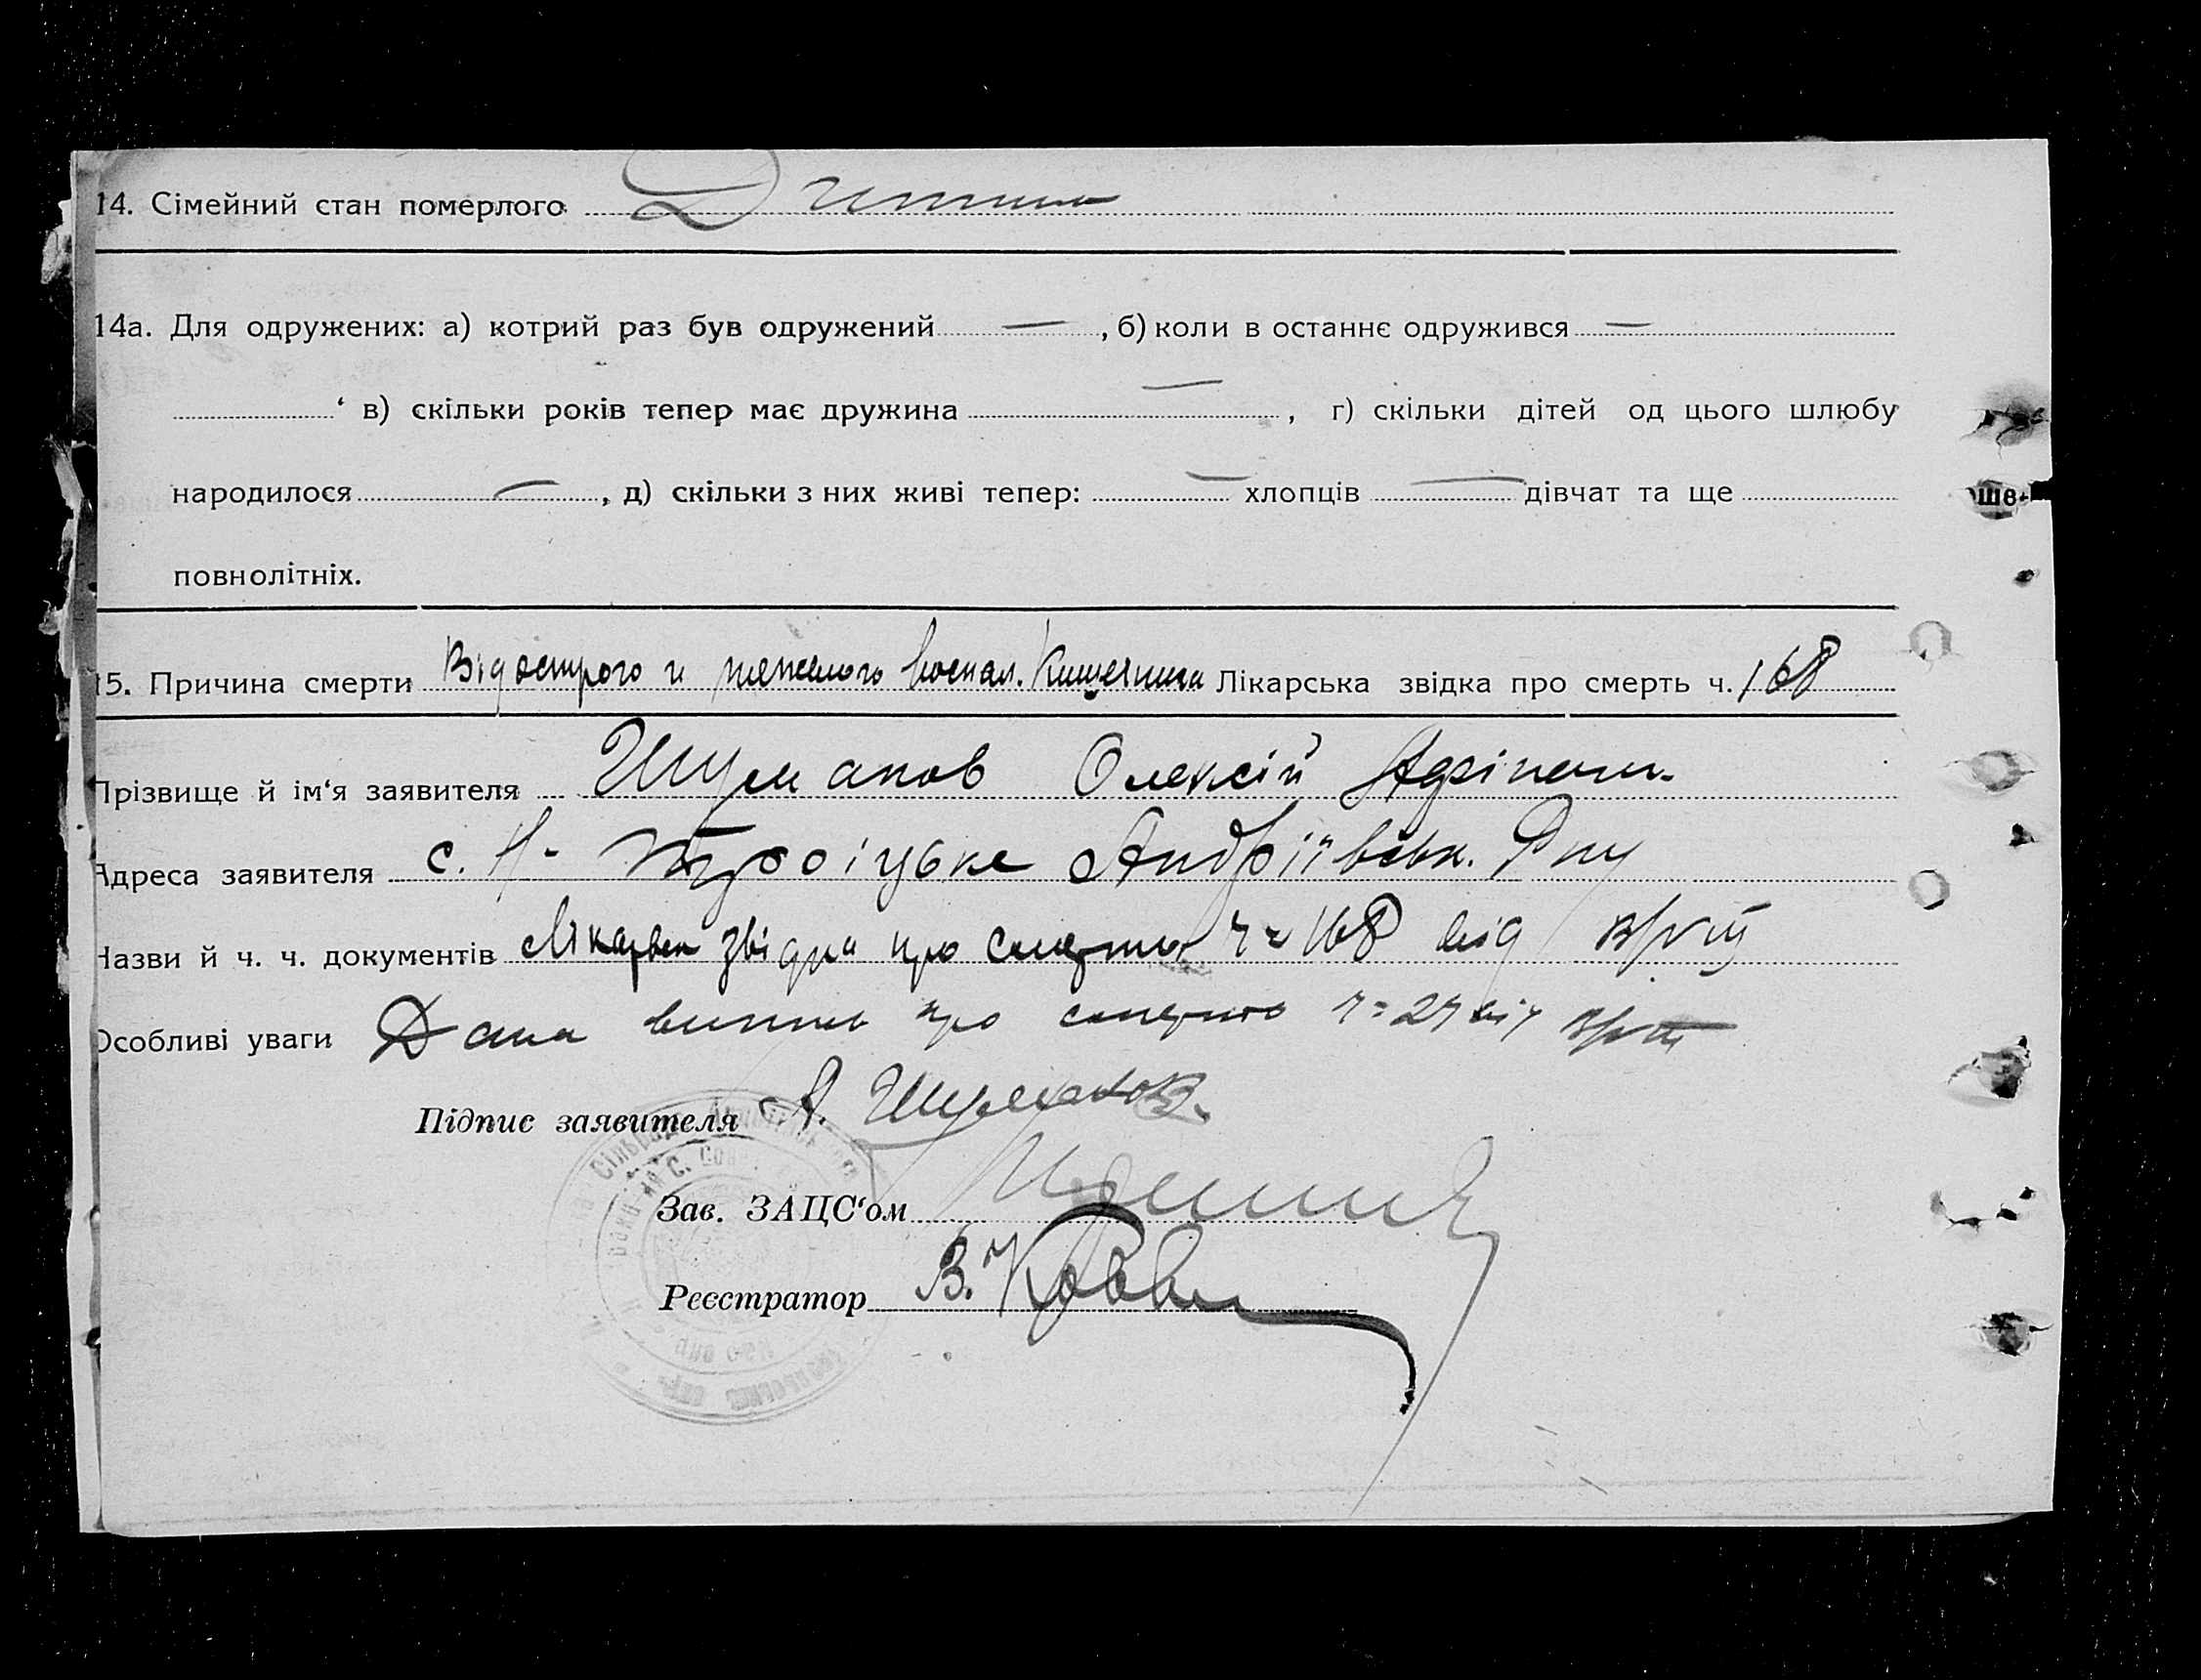 14. Сімейний стан померлого Дитина
14а. Для одружених: а) котрий раз був одружений — , б) коли в останнє одружився —
‘ в) скільки років тепер має дружина — , г) скільки дітей од цього шлюбу
народилося — , д) скільки з них живі тепер: — хлопців — дівчат та ще
повнолітніх.
15. Причина смерти Від острого и тяжелого воспал. Кишечника Лікарська звідка про смерть ч. 168
Прізвище й ім‘я заявителя Шуманов Олексій
Адреса заявителя с. Н- Троіцьке Андріївськ. Рну
Назви й ч. ч. документів Лікарськ звідка про смерть ч= 168 від
Особливі уваги Дана випись про смерть ч= 27 від
Підпис заявителя А. Шуманов
Зав. ЗАЦС‘ом
Реєстратор В.